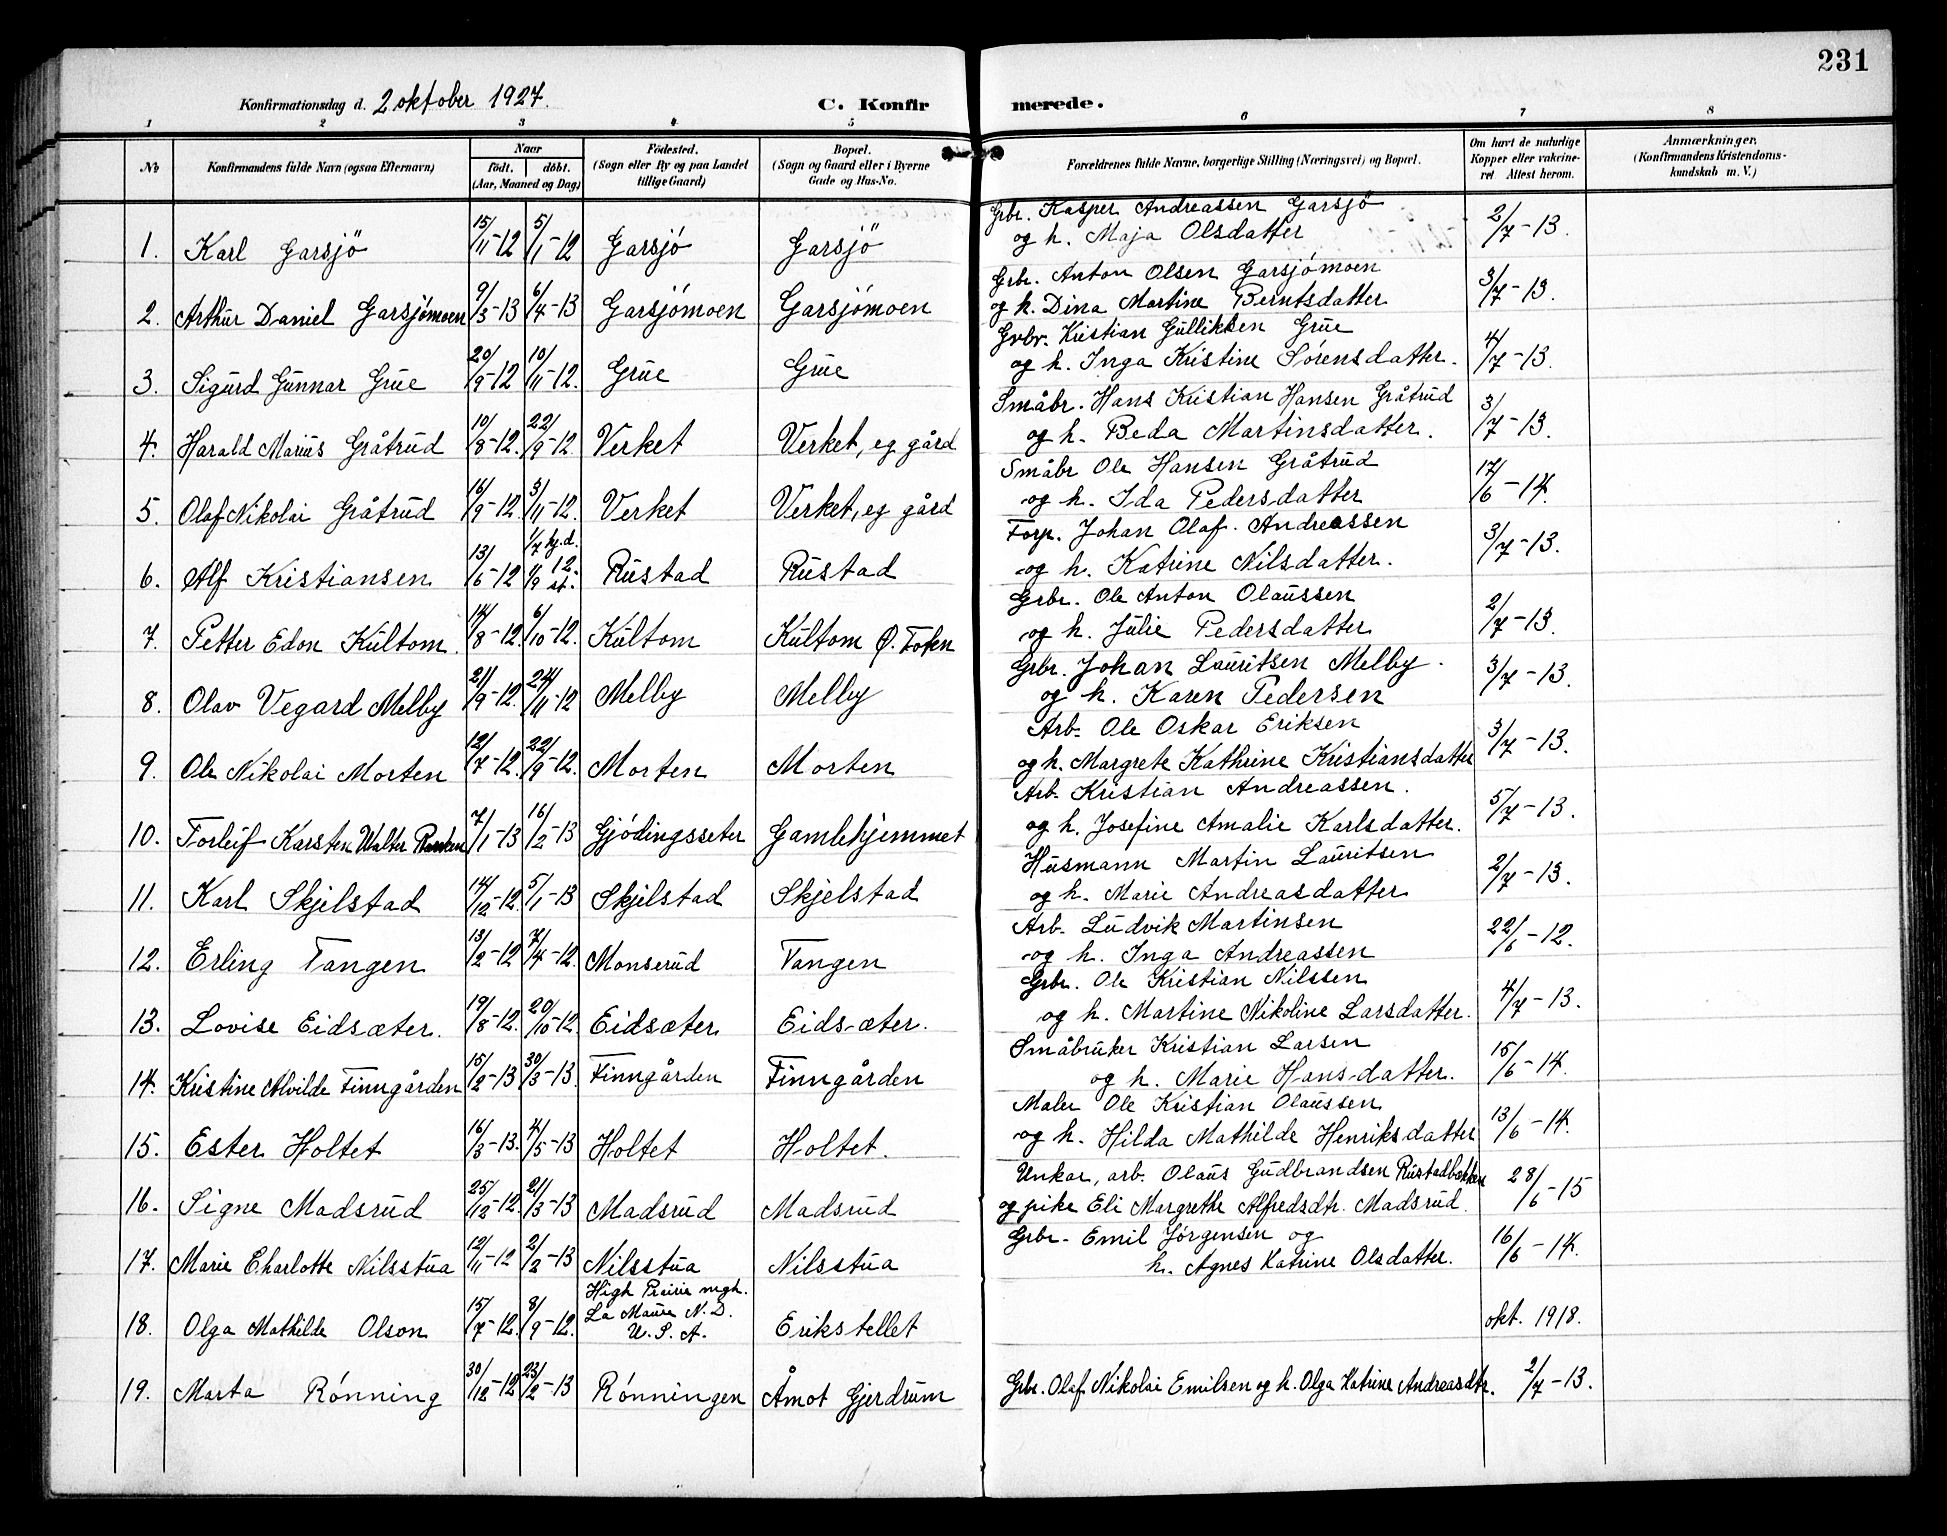 231
Konfirmationsdag d. 2 oktober 1927. C. Konfirmerede.
1 2 3 4 5 6 7 8
No Konfirmandens fulde Navn (ogsaa Efternavn) Naar født. døbt. (Aar, Maaned og Dag) Födested. (Sogn eller By og paa Landet tillige Gaard) Bopæl. (Sogn og Gaard eller i Byerne Gade og Hus-No. Forældrenes fulde Navne, borgerlige Stilling (Næringsvei) og Bopæl. Om havt de naturlige Kopper eller vakcineret Attest herom. Anmærkninger. (Konfirmandens Kristendomskundskab m. V.)
Grbr. Kasper Andreassen Garsjö
1. Karl Garsjö 15/11-12 5/1-12 Garsjö Garsjö og h. Maja Olsdatter 2/7-13.
Grbr. Anton Olsen Garsjómoen
2. Arthur Daniel Garsjómoen 9/3-13 6/4-13 Garsjómoen Garsjómoen og h. Dina Martine Berntsdatter 3/7-13.
Grbr. Kristian Gullikksen Grue
3. Sigurd Gunnar Grue 20/9-12 10/11-12. Grue Grue og h. Inga Kristine Sørensdatter. 4/7-13.
Småbr. Hans Kristian Hansen Gråtrud
4. Harald Marius Gråtrud 10/8-12. 22/9-12. Verket Verket, eg gård og h. Beda Martinsdatter. 3/7-13.
Småbr Ole Hansen Gråtrud
5. Olaf Nikolai Gråtrud 16/9-12. 3/11-12. Verket Verket, eg gård og h. Ida Pedersdatter 17/6-14.
Forp. Johan Olaf. Andreassen
6. Alf Kristiansen 13/6-12 1/7 hj.d. 1/9 12. st. Rustad Rustad og h. Katrine Nilsdatter. 3/7-13.
Grbr. Ole Anton Olaussen
7. Petter Edon Kultom. 14/8-12. 6/10-12. Kultom Kultom Ø. Toten og h. Julie Pedersdatter 2/7-13.
Grbr. Johan Lauritsen Melby.
8. Olav Vegard Melby 21/9-12. 24/11-12 Melby Melby og h. Karen Pedersen 3/7-13.
Arb. Ole Oskar Eriksen
9. Ole Nikolai Morten 12/7-12. 22/9-12. Morten Morten og h. Margrete Kathrine Kristiansdatter 3/7-13.
Arb. Kristian Andreassen.
10. Torleif Karsten Walter 7/1-13 16/2-13 Gjódingsseter Gamlehjemmet og h. Josefine Amalie Karlsdatter. 5/7-13.
Husmann Martin Lauritsen
11. Karl Skjelstad 14/12-12. 5/1-13 Skjelstad Skjelstad og h. Marie Andreasdatter 2/7-13.
Arb. Ludvik Martinsen
12. Erling Tangen 13/2-12 7/4-12. Monserud Tangen og h. Inga Andreassen 22/6-12.
Grbr. Ole Kristian Nilssen
13. Lovise Eidsæter. 19/8-12. 20/10-12. Eidsæter Eids-æter. og h. Martine Nikoline Larsdatter. 4/7-13.
Småbruker Kristian Larsen
14. Kristine Alvilde Finngården 15/2-13 30/3-13. Finngården Finngården og h. Marie Hans-datter. 15/6-14.
Maler Ole Kristian Olaussen
15. Ester Holtet 16/3-13. 4/5-13 Holtet Holtet. og h. Hilda Mathilde Henriksdatter 13/6-14.
Unkar, arb. Olaus Gudbrandsen Rustadbakken
16. Signe Madsrud 25/12-12. 21/3-13 Madsrud Madsrud og pike Eli Margrethe Alfredsdtr. Madsrud. 28/6-15
Grbr. Emil Jørgensen og
17. Marie Charlotte Nilsstua 12/11-12 2/2-13 Nilsstua Nilsstua h. Agnes Katrine Olsdatter. 16/6-14.
High Prairie mgh.
18. Olga Mathilde Olson 15/7-12. 8/9-12. La Maure N.D. U.S.A. Erikstellet okt. 1918.
19. Marta Rónning 30/12-12 23/2-13 Rónningen Åmot Gjerdrum Grbr. Olaf Nikolai Emilsen og h. Olga Katrine Andreasdtr. 2/7-13.